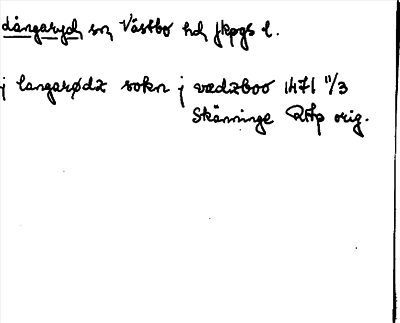 Långaryd sn Västbo hd Jkpgs l.
j langarødz sokn j wædzboo 1471 11/3
Skänninge RAp orig.